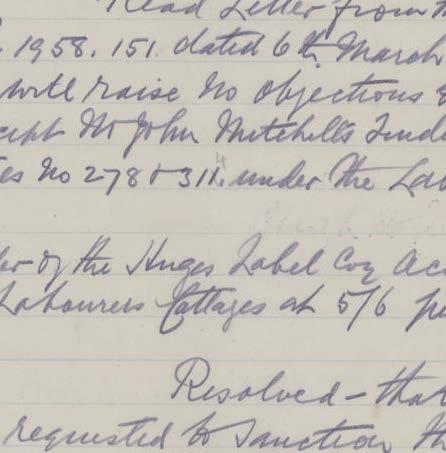 Read Letter from
1958.151. dated 6th March
will raise no objections
Mr John Mitchell's Tend
es No 278 & 311. under the La
4
of the Huges Label Coy Ac
Labourers Cottages at 5/6 pe
Resolved - that
requested to Sanction th